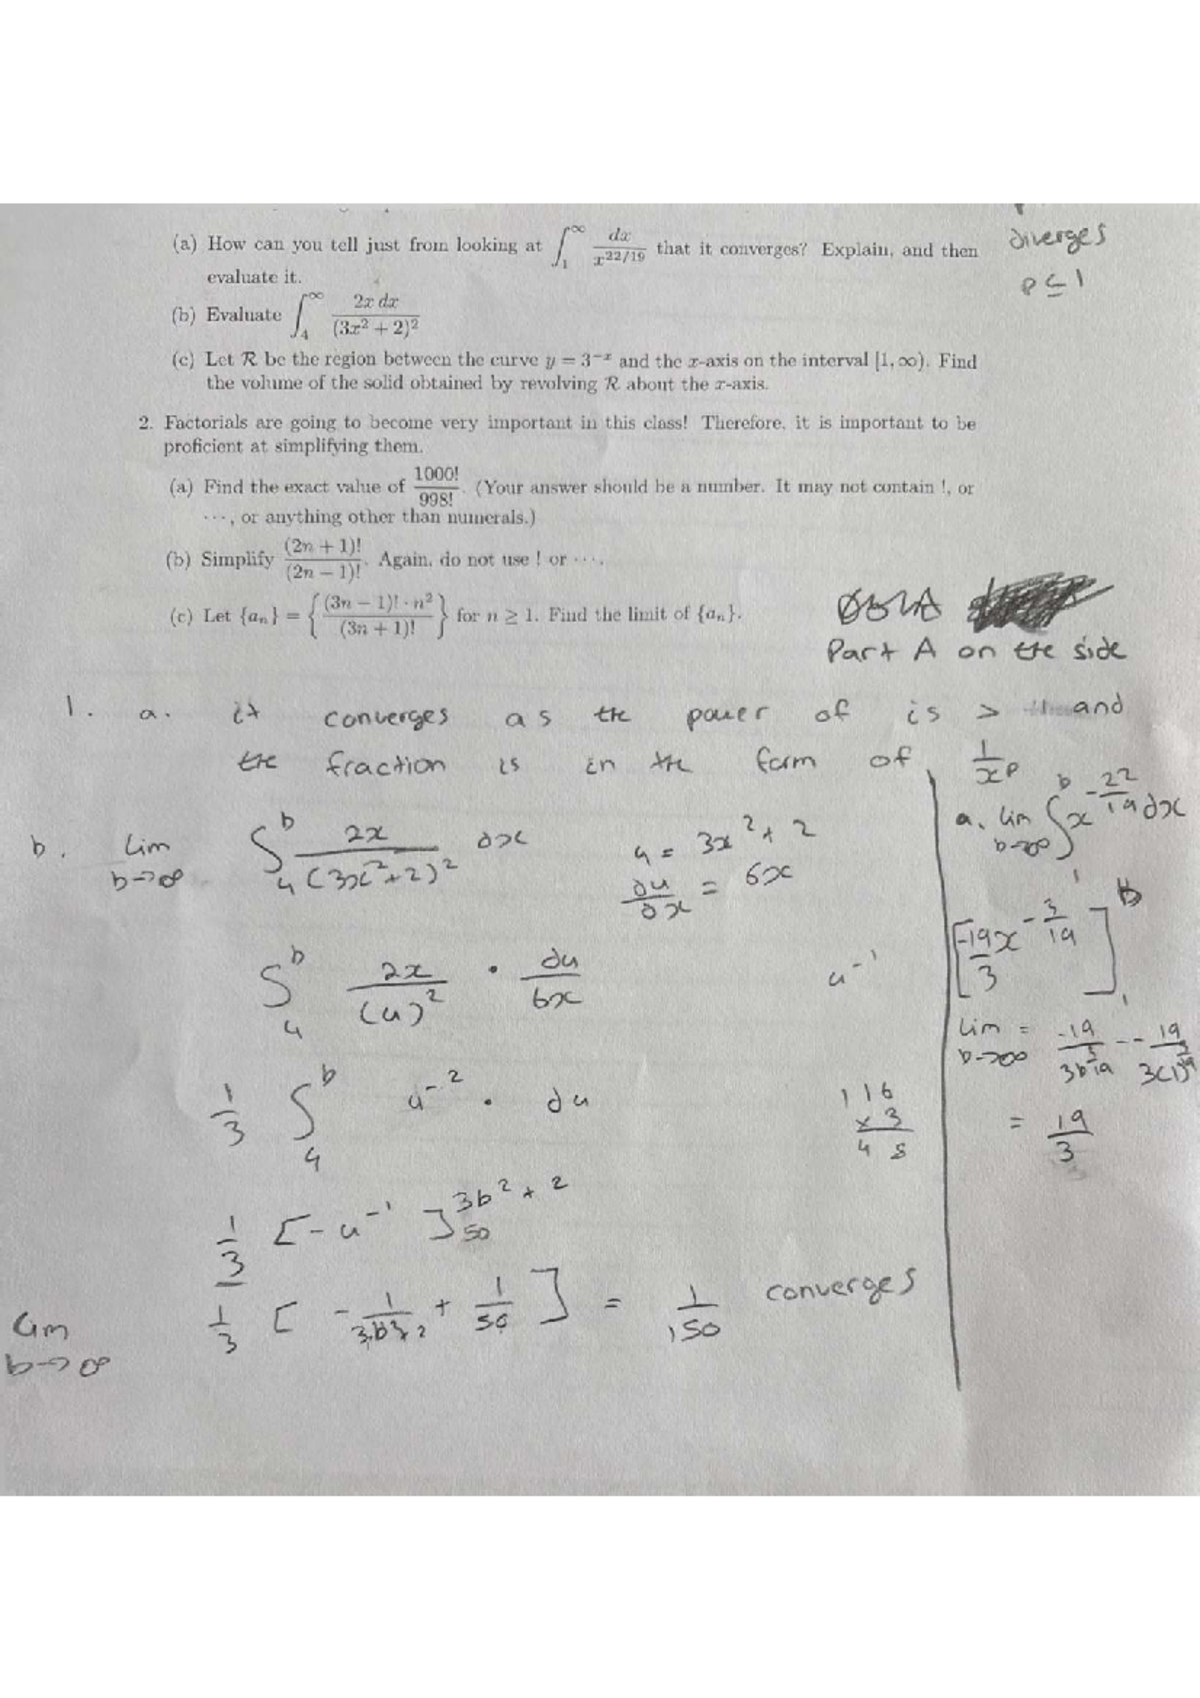 diverges
p ≤ 1
(a) How can you tell just from looking at ∫₁^∞ dx/x^{22/19} that it converges? Explain, and then
evaluate it.
(b) Evaluate ∫₄^∞ 2x dx/(3x² + 2)²
(c) Let R be the region between the curve y = 3^{-x} and the x-axis on the interval [1, ∞). Find
the volume of the solid obtained by revolving R about the x-axis.
2. Factorials are going to become very important in this class! Therefore, it is important to be
proficient at simplifying them.
(a) Find the exact value of 1000!/998!. (Your answer should be a number. It may not contain !, or
⋯, or anything other than numerals.)
(b) Simplify (2n + 1)!/(2n − 1)!. Again, do not use ! or ⋯.
(c) Let {aₙ} = {(3n − 1)! · n²/(3n + 1)!} for n ≥ 1. Find the limit of {aₙ}.
Part A on the side
1. a. it converges as the power of is > 1 and
the fraction is in the form of 1/x^p
b. lim b→∞ ∫₄^b 2x/(3x²+2)² dx u = 3x² + 2
du/dx = 6x
∫₄^b 2x/(u)² · du/6x u^{-1}
1/3 ∫₄^b u^{-2} · du
116
x 3
4 8
1/3 [-u^{-1}]₅₀^{3b²+2}
lim b→∞ 1/3 [ -1/3b²+2 + 1/50 ] = 1/150 converges
a. lim b→∞ ∫₁^b x^{-22/19} dx
[-19/3 x^{-3/19}]₁^b
lim b→∞ = -19/3b^{3/19} - - 19/3(1)^{3/19}
= 19/3